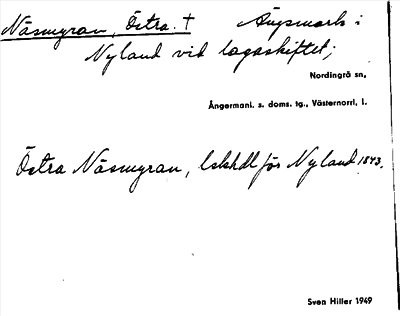 Näsmyran, Östra. † Ängsmark i
Nyland vid lagaskiftet;
Nordingrå sn,
Ångermanl. s. doms. tg., Västernorrl. l.
Östra Näsmyran, lskhdl för Nyland 1843.
Sven Hiller 1949